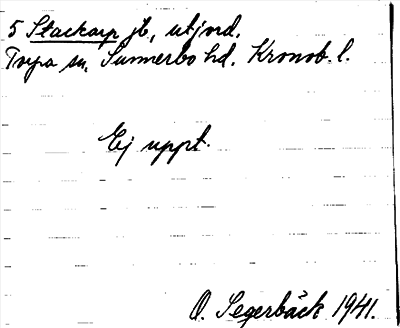 5 Stackarp jb, utjord.
Torpa sn. Sunnerbo hd. Kronob. l.
Ej uppt.
O. Segerbäck 1941.